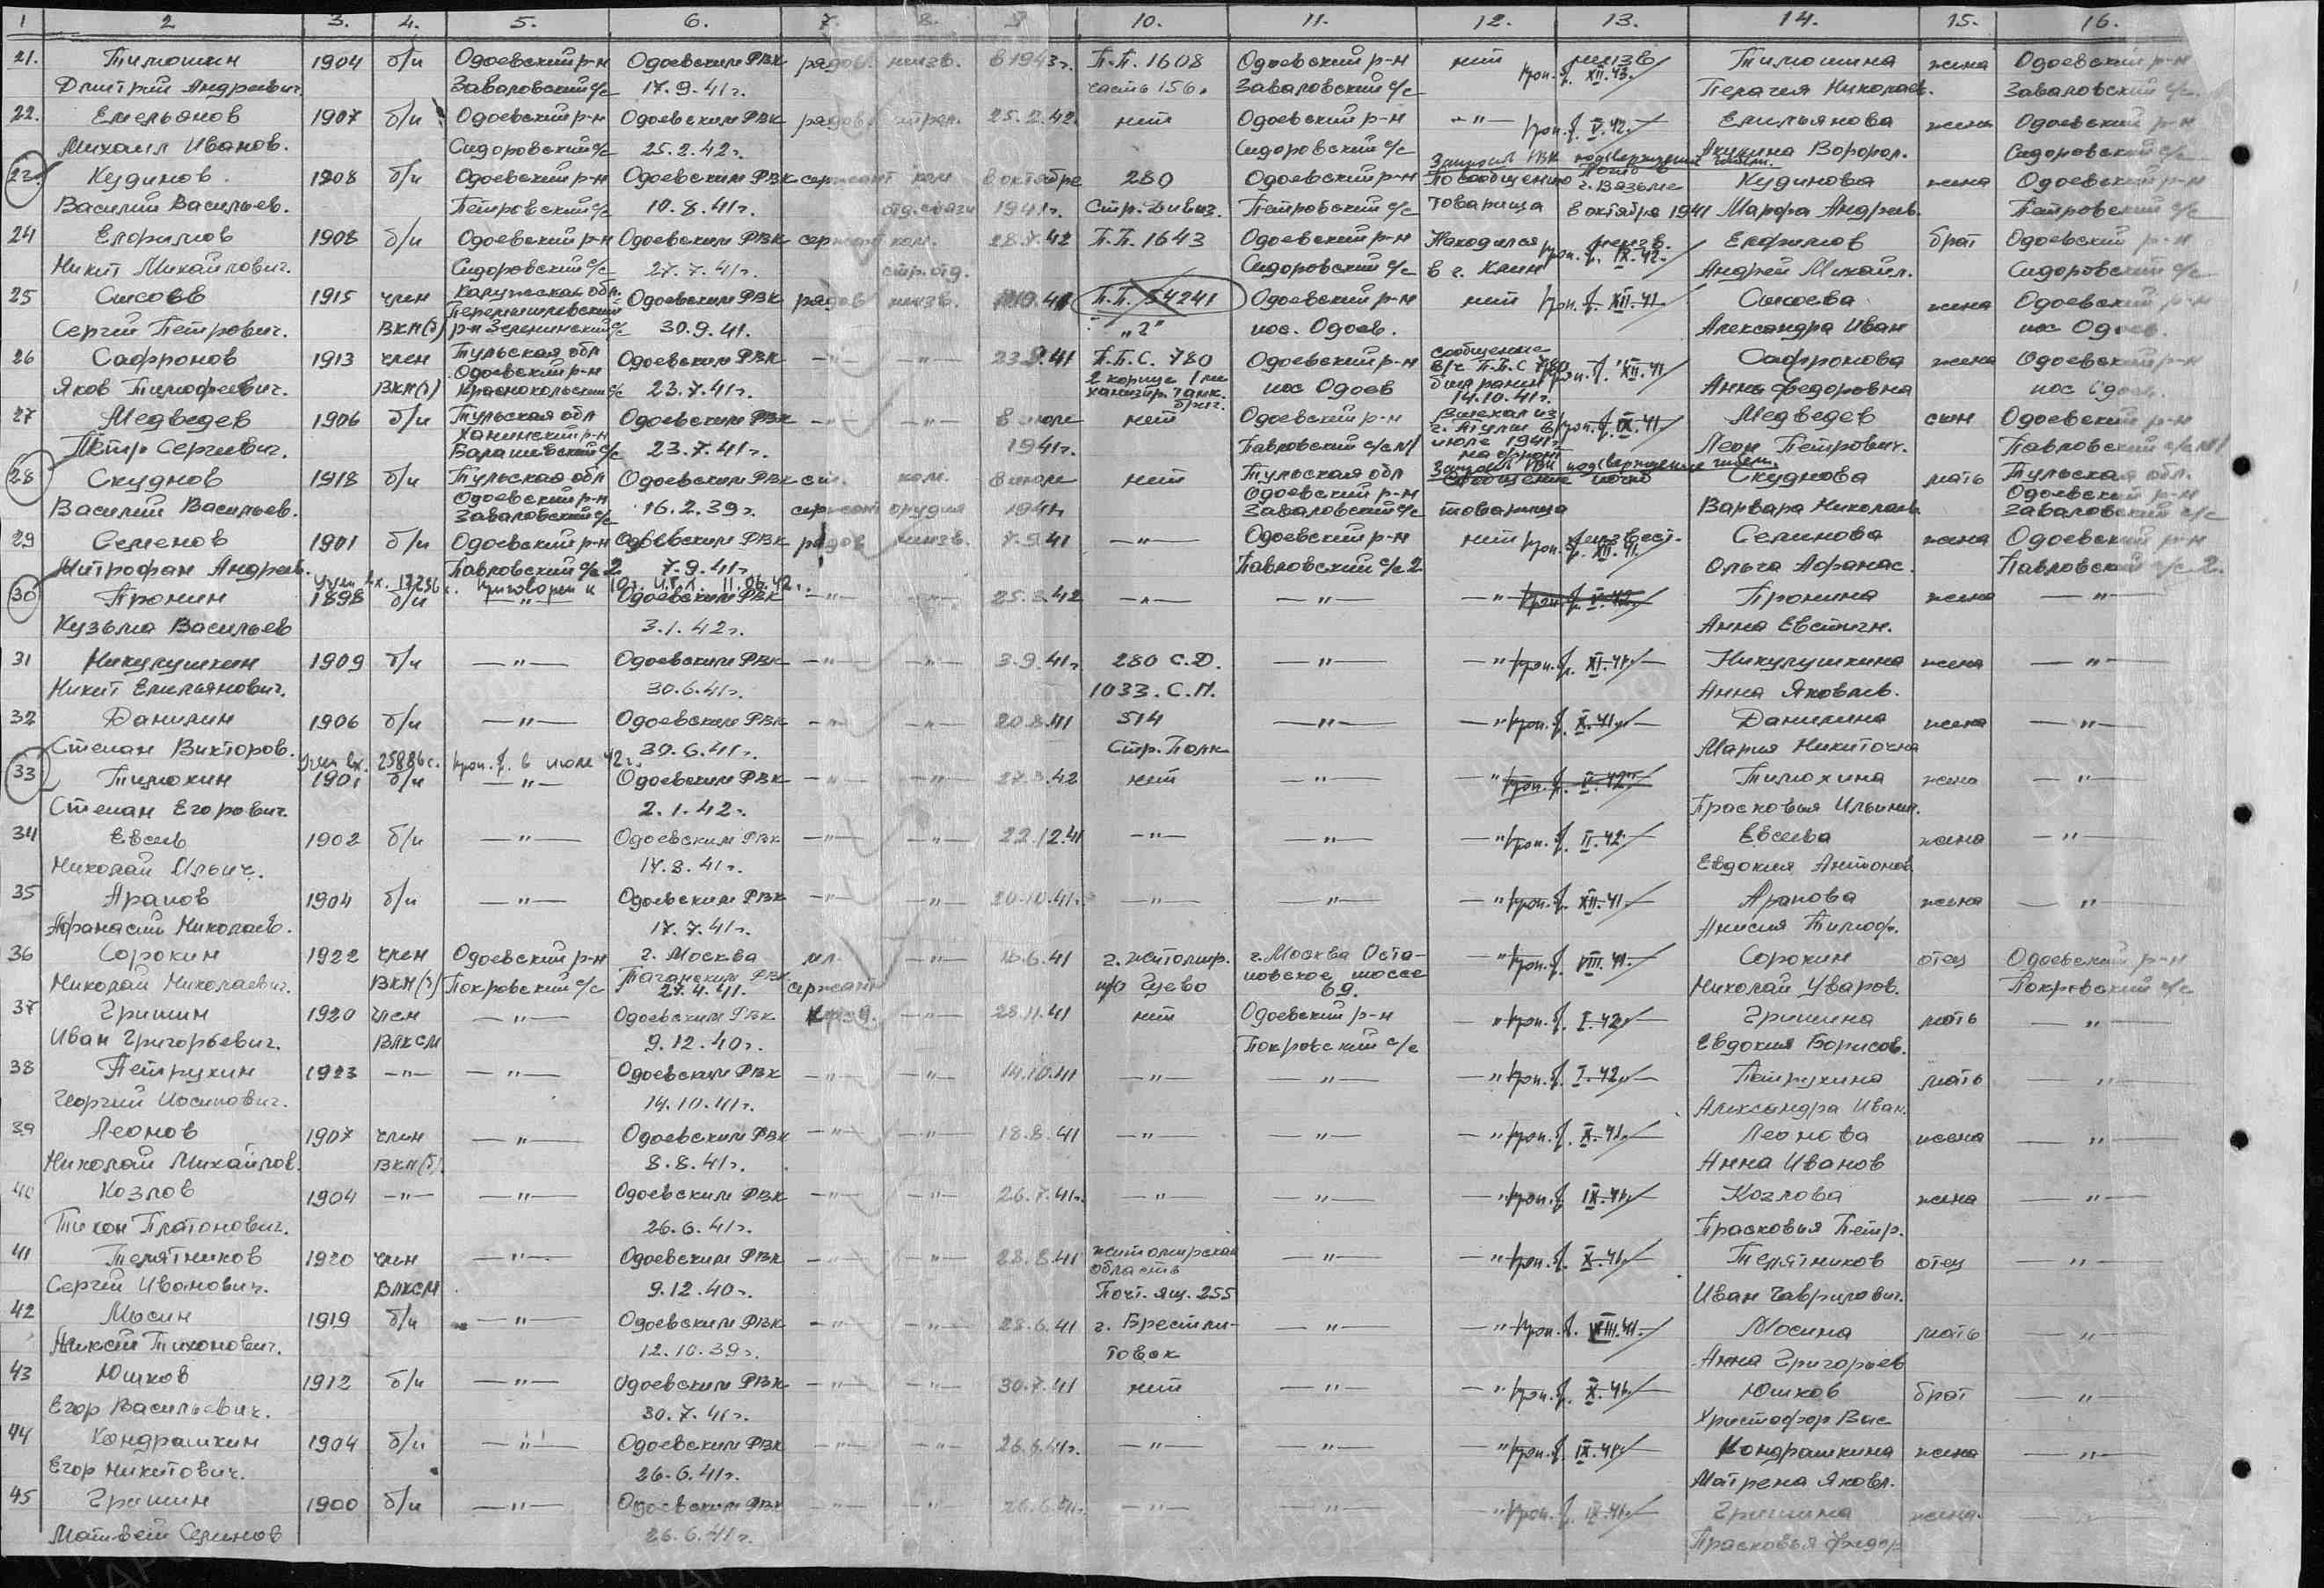 1 2 3. 4. 5. 6. 7. 8. 9 10. 11. 12. 13. 14. 15. 16.
21. Тимошин 1904 б/п Одоевский р-н Одоевским РВК рядов. неизв. в 1943г. П.П. 1608 Одоевский р-н нет неизв Тимошина жена Одоевский р-н
Дмитрий Андреевич. Заваловский с/с 17.9.41г. часть 156. Заваловский с/с проп. б. XII.43. Пелагея Николаев. Заваловский с/с.
22. Емельянов 1907 б/п Одоевский р-н Одоевским РВК рядов. стрел. 25.2.42. нет Одоевский р-н —"— проп. б. V.42. Емельянова жена Одоевский р-н
Михаил Иванов. Сидоровский с/с 25.2.42г. Сидоровский с/с Акулина Сидоровский с/с
Запрошен РВК подтверждение гибели.
23. Кудинов 1908 б/п Одоевский р-н Одоевским РВК сержант ком. в октябре 280 Одоевский р-н По сообщению г. Вязьме Кудинова жена Одоевский р-н
Василий Васильев. Петровский с/с 10.8.41г. отд. связи 1941г. Стр. Дивиз. Петровский с/с товарища в октябре 1941 Марфа Андреев. Петровский с/с
24 Ефимов 1908 б/п Одоевский р-н Одоевским РВК сержант ком. 28.7.42 П.П. 1643 Одоевский р-н Находился неизв. Ефимов брат Одоевский р-н
Никит Михайлович. Сидоровский с/с 27.7.41г. стр. отд. Сидоровский с/с в г. Клин проп. б. IX.42. Андрей Михайл. Сидоровский с/с
25 Сысоев 1915 член Калужская обл. Перемышлевский Одоевским РВК рядов неизв. П.П. 54241 Одоевский р-н нет проп. б. XII.41 Сысоева жена Одоевский р-н
Сергей Петрович. ВКП(б) р-н Зеленинский с/с 30.9.41. "2" пос. Одоев. Александра Иван пос Одоев.
26 Сафронов 1913 член Тульская обл Одоевский р-н Одоевским РВК —"— —"— 23.9.41 П.П.С. 780 Одоевский р-н сообщение в/ч П.П.С 780 проп. б. XII.41 Сафронова жена Одоевский р-н
Яков Тимофеевич. ВКП(б) Краснокольский с/с 23.7.41г. танк. бриг. пос Одоев был ранен 14.10.41г. Анна Федоровна пос Одоев.
27 Медведев 1906 б/п Тульская обл Ханинский р-н Одоевским РВК —"— —"— в июле нет Одоевский р-н Выехал из г. Тулы в проп. б. IX.41. Медведев сын Одоевский р-н
Петр Сергеевич. Барашевский с/с 23.7.41г. 1941г. Павловский с/с №1 июле 1941г. на фронт Леон Петрович. Павловский с/с №1
Запрошен РВК подтверждение гибели.
28 Скуднов 1918 б/п Тульская обл Одоевским РВК ст. ком. в июле нет Тульская обл Сообщение Скуднова мать Тульская обл.
Василий Васильев. Одоевский р-н Заваловский с/с 16.2.39г. сержант орудия 1941г Одоевский р-н Заваловский с/с товарища Варвара Николаев Одоевский р-н Заваловский с/с
29 Семенов 1901 б/п Одоевский р-н Одоевским РВК рядов неизв. 7.9.41 —"— Одоевский р-н нет неизвест. Семенова жена Одоевский р-н
Митрофан Андреев. Павловский с/с 2 7.9.41г. Павловский с/с 2 проп. б. XII.41. Ольга Афанас. Павловский с/с 2.
вх. 17236с. приговорен к 10г. И.Т.Л. 11.06.42г.
30 Пронин 1898 б/п —"— Одоевским РВК —"— —"— 25.3.42 —"— —"— —"— проп. б. V.42. Пронина жена —"—
Кузьма Васильев 3.1.42г. Анна Евстигн.
31 Никулушкин 1909 б/п —"— Одоевским РВК —"— —"— 3.9.41г 280 С.Д. —"— —"— проп. б. XI.41. Никулушкина жена —"—
Никит Емельянович. 30.6.41г. 1033. С.П. Анна Яковлев.
32 Данилин 1906 б/п —"— Одоевским РВК —"— —"— 20.8.41 514 —"— —"— проп. б. X.41. Данилина жена —"—
Степан Викторов. 30.6.41г. Стр. Полк Мария Никиточна
вх. 25886с. проп. б. в июле 42г.
33 Тимохин 1901 б/п —"— Одоевским РВК —"— —"— 27.3.42 нет —"— —"— проп. б. V.42 Тимохина жена —"—
Степан Егорович. 2.1.42г. Прасковья Ильинич.
34 Евсеев 1902 б/п —"— Одоевским РВК —"— —"— 22.12.41 —"— —"— —"— проп. б. II.42. Евсеева жена —"—
Николай Ильич. 17.8.41г. Евдокия Антонов
35 Арапов 1904 б/п —"— Одоевским РВК —"— —"— 20.10.41г. —"— —"— —"— проп. б. XII.41 Арапова жена —"—
Афанасий Николаев. 17.7.41г. Анисия Тимоф.
36 Сорокин 1922 член Одоевский р-н г. Москва мл. —"— 16.6.41 г. Житомир. г. Москва Оста- —"— проп. б. VIII.41. Сорокин отец Одоевский р-н
Николай Николаевич. ВКП(б) Покровский с/с Таганским РВК 27.4.41. сержант п/о Гуево повское шоссе 69. Николай Уваров. Покровский с/с
37 Гришин 1920 член —"— Одоевским РВК —"— 28.11.41 нет Одоевский р-н —"— проп. б. I.42. Гришина мать —"—
Иван Григорьевич. ВЛКСМ 9.12.40г. Покровский с/с Евдокия Борисов.
38 Петрухин 1923 —"— —"— Одоевским РВК —"— —"— 14.10.41 —"— —"— —"— проп. б. I.42 Петрухина мать —"—
Георгий Иосипович. 14.10.41г. Александра Иван.
39 Леонов 1907 член —"— Одоевским РВК —"— —"— 18.8.41 —"— —"— —"— проп. б. X.41. Леонова жена —"—
Николай Михайлов. ВКП(б). 8.8.41г. Анна Иванов
40 Козлов 1904 —"— —"— Одоевским РВК —"— —"— 26.7.41г. —"— —"— —"— проп. б. IX.41. Козлова жена —"—
Тихон Платонович. 26.6.41г. Прасковья Петр.
41 Телятников 1920 член —"— Одоевским РВК —"— —"— 28.8.41 Житомирская область —"— —"— проп. б. X.41. Телятников отец —"—
Сергей Иванович. ВЛКСМ 9.12.40г. Почт. ящ. 255 Иван Гаврилович.
42 Мосин 1919 б/п —"— Одоевским РВК —"— —"— 28.6.41 г. Брестли- —"— —"— проп. б. VIII.41. Мосина мать —"—
Алексей Тихонович. 12.10.39г. товск Анна Григорьев
43 Юшков 1912 б/п —"— Одоевским РВК —"— —"— 30.7.41 нет —"— —"— проп. б. X.41. Юшков брат —"—
Егор Васильевич. 30.7.41г. Христофор Вас
44 Кондрашкин 1904 б/п —"— Одоевским РВК —"— —"— 26.6.41г. —"— —"— —"— проп. б. IX.41. Кондрашкина жена —"—
Егор Никитович. 26.6.41г. Матрена Яковл.
45 Гришин 1900 б/п —"— Одоевским РВК —"— —"— 26.6.41г. —"— —"— —"— проп. б. IX.41. Гришина жена. —"—
Матвей Семенов 26.6.41г. Прасковья Федор